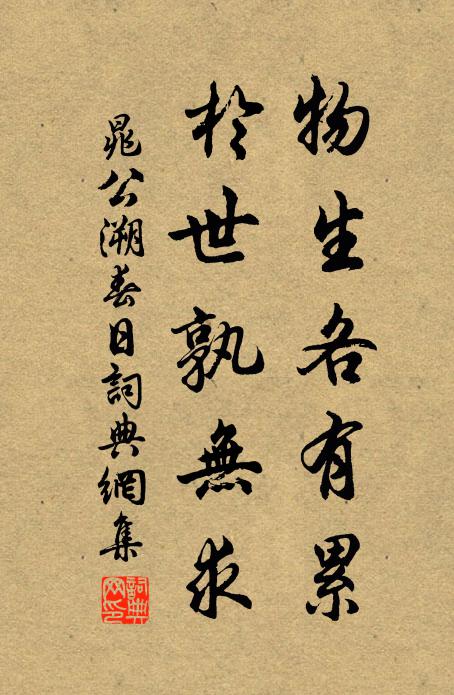 物生各有累
於世孰無求
晁公溯春日詞典網集
詞典网印